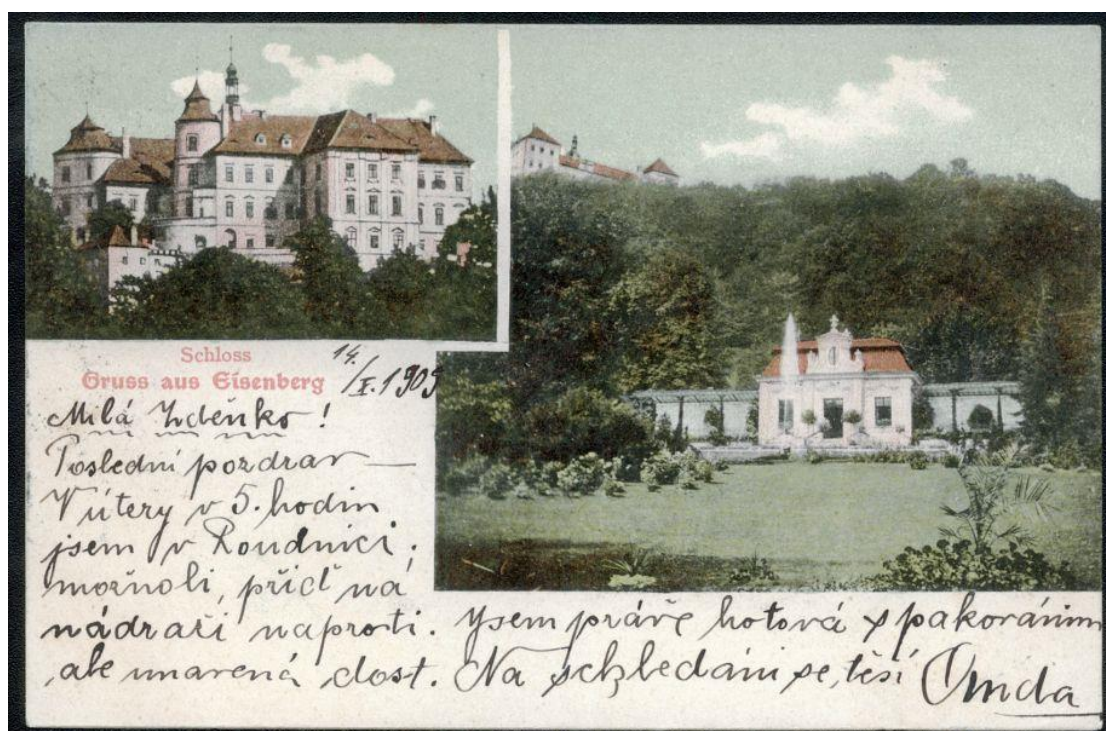 Schloss
Gruss aus Eisenberg
14./X. 1905
Milá Zdeňko!
Poslední pozdrav —
V útery v 5. hodin
jsem v Roudnici.
možnoli, přiď na
nádraží naproti. Jsem práve hotová s pakováním
ale unavená dost. Na schledání se těší